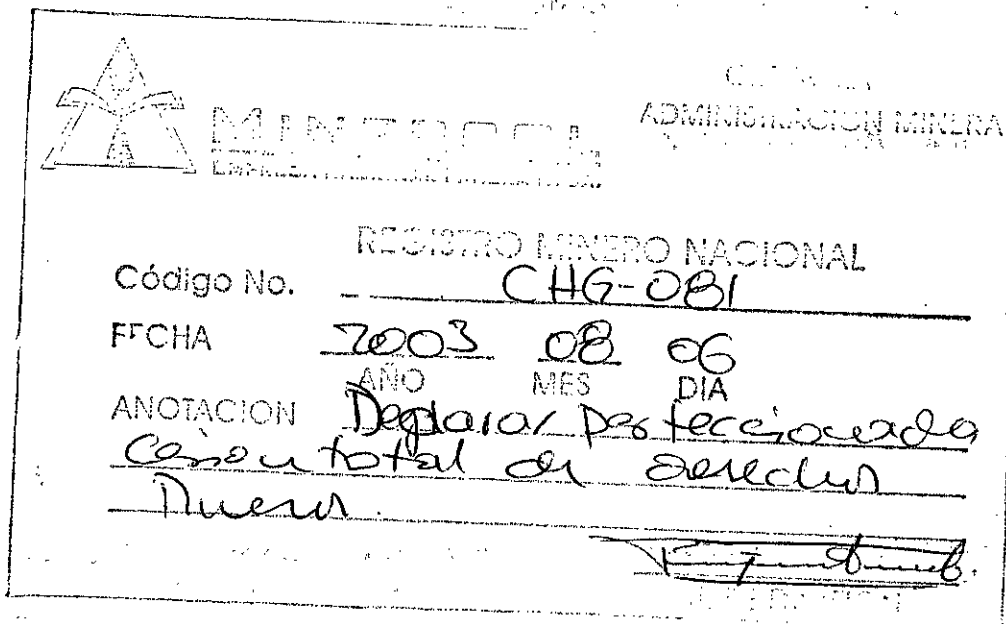 ADMINISTRACION MINERA
REGISTRO MINERO NACIONAL
Código No. CHG-081
FECHA 2003 08 06
AÑO MES DIA
ANOTACION Declarar perfeccionada
Cesion total de derechos
Mineros.